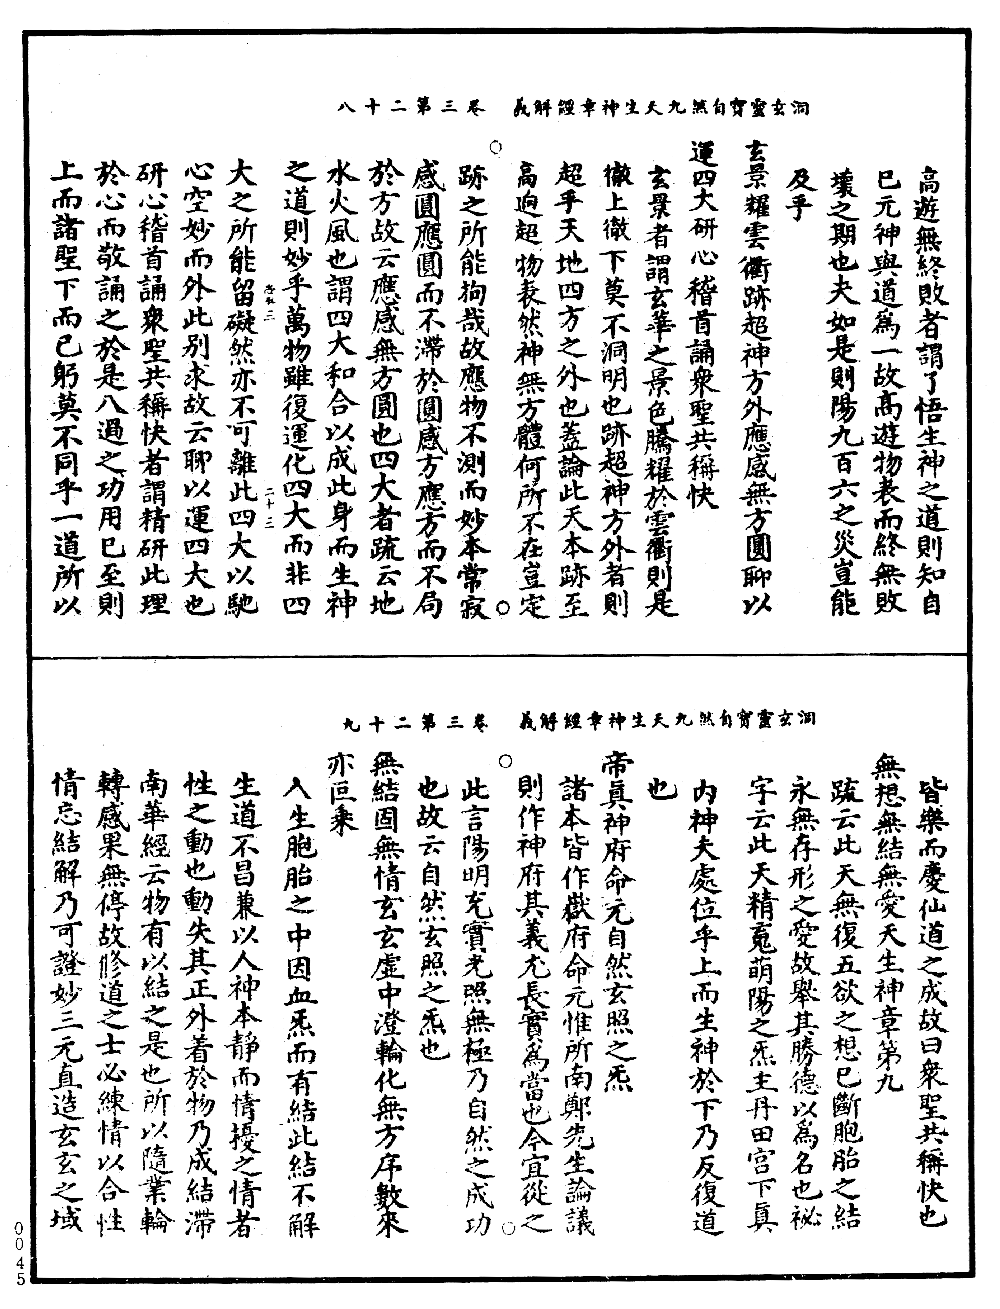 洞玄靈寶自然九天生神章經解義　卷三第二十八
高遊無終敗者謂了悟生神之道則知自
已元神與道爲一故高遊物表而終無敗
壞之期也夫如是則陽九百六之災豈能
及乎
玄景耀雲衢跡超神方外應感無方圓聊以
運四大研心稽首誦衆聖共稱快
玄景者謂玄華之景色騰耀於雲衢則是
徹上徹下莫不洞明也跡超神方外者則
超乎天地四方之外也蓋論此天本跡至
高逈超物表然神無方體何所不在豈定
跡之所能拘哉故應物不測而妙本常寂
感圓應圓而不滯於圓感方應方而不局
於方故云應感無方圓也四大者疏云地
水火風也謂四大和合以成此身而生神
之道則妙乎萬物雖復運化四大而非四
大之所能留礙然亦不可離此四大以馳
心空妙而外此別求故云聊以運四大也
研心稽首誦衆聖共稱快者謂精研此理
於心而敬誦之於是八過之功用已至則
上而諸聖下而已躬莫不同乎一道所以
二十三
洞玄靈寶自然九天生神章經解義　卷三第二十九
皆樂而慶仙道之成故曰衆聖共稱快也
無想無結無愛天生神章第九
疏云此天無復五欲之想已斷胞胎之結
永無存形之愛故舉其勝德以爲名也祕
字云此天精䰟萌陽之炁主丹田宫下眞
内神夫處位乎上而生神於下乃反復道
也
帝眞神府命元自然玄照之炁
諸本皆作嶽府命元惟所南鄭先生論議
則作神府其義尤長實爲當也今宜從之
此言陽明充實光照無極乃自然之成功
也故云自然玄照之炁也
無結固無情玄玄虛中澄輪化無方序數來
亦叵乗
人生胞胎之中因血炁而有結此結不解
生道不昌兼以人神本靜而情擾之情者
性之動也動失其正外着於物乃成結滯
南華經云物有以結之是也所以隨業輪
轉感果無停故修道之士必練情以合性
情忘結解乃可證妙三元直造玄玄之域
0045